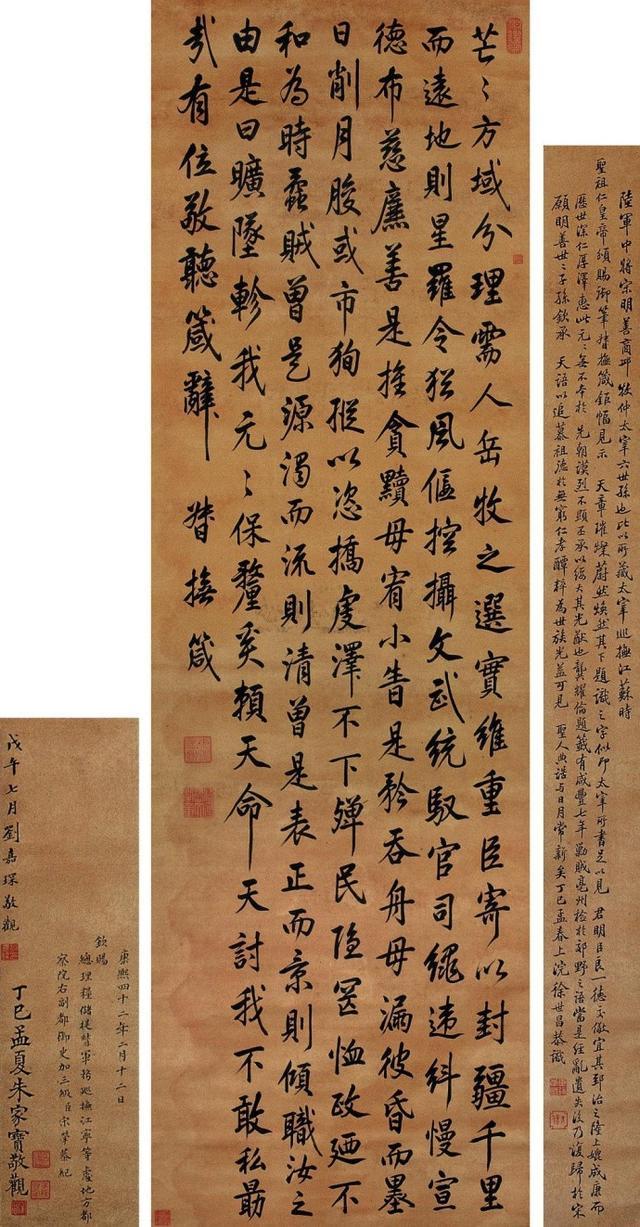 陸軍中將宋明善商邱牧仲太宰六世孫也此以所藏太宰巡撫江蘇時
聖祖仁皇帝頒賜御筆督撫箴鉅幅見示 天章璀璨蔚然煥然其下題識之字似即太宰所書足以見 君明臣良一德交儆宜其郅治之隆上媲成康而
歷世深仁厚澤惠此元〻無不本於 先朝謨烈丕顯丕承以綏大其光猷也龔耀倫題籤有咸豐七年勦賊亳州檢於郊野之語當是經亂遺失後乃復歸於宋
願明善世〻子孫欽承 天語以追慕祖德於無窮仁孝醰粹為世族光並可見 聖人典誥與日月常新矣丁巳孟春上浣徐世昌恭識
芒〻方域分理需人岳牧之選實維重臣寄以封疆千里
而遠地則星羅令猶風偃控攝文武統馭官司繩違糾慢宣
德布慈廉善是推貪黷毋宥小眚是矜吞舟毋漏彼昏而墨
日削月朘或市狥縱以恣撟虔澤不下殫民隐罔恤政廼不
和為時蟊賊曾是源濁而流則清曾是表正而景則傾職汝之
由是曰曠墜軫我元〻保釐奚賴天命天討我不敢私勗
哉有位敬聽箴辭 督撫箴
康熙四十二年二月十二日
欽賜
總理糧儲提督軍務巡撫江寧等處地方都
察院右副都御史加三級臣宋犖恭紀
丁巳孟夏朱家寶敬觀
戊午七月劉嘉琛敬觀